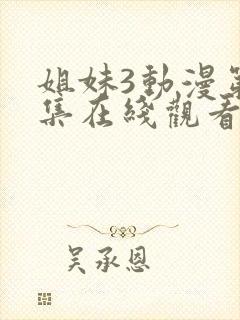 姐妹3動漫第
集在綫觀看
吳承恩